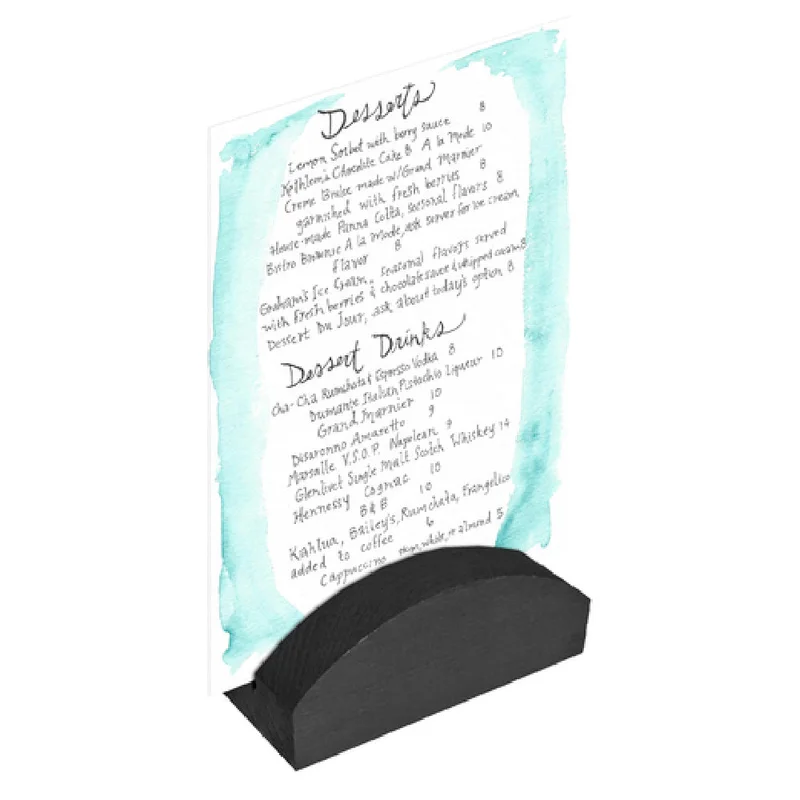 Desserts
Lemon Sorbet with berry sauce 8
Kathleen's Chocolate Cake 8 A la Mode 10
Creme Brulee made w/Grand Marnier
garnished with fresh berries 8
House-made Panna Cotta, seasonal flavors 8
Bistro Brownie A la Mode, ask server for ice cream
flavor 8
Graham's Ice Cream, seasonal flavors served
with fresh berries & chocolate sauce & whipped cream 8
Dessert Du Jour, ask about today's option 8
Dessert Drinks
Cha-Cha Rumchata & Espresso Vodka 8
Dumante Italian Pistachio Liqueur 10
Grand Marnier 10
Disaronno Amaretto 9
V.S.O.P. Napolean 9
Glenlivet Single Malt Scotch Whiskey 14
Hennessy Cognac 10
B&B 10
Kahlua, Bailey's, Rumchata, Frangelico
added to coffee 6
Cappuccino skim, whole, or almond 5